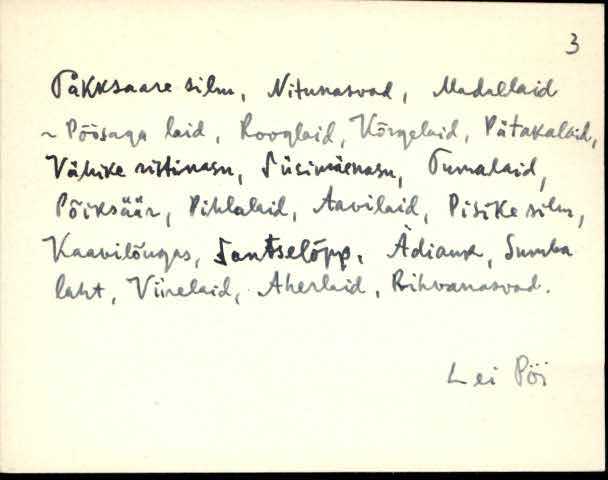 3
Pakksaare silm, Nitunasvad, Madallaid
~ Põõsaga laid, Rooglaid, Kõrgelaid, Pätakalaid,
Vähike ristinasu, Süsimäenasu, Tumalaid,
Põiksäär, Pihlalaid, Aavilaid, Pisike silm,
Kaavilõugas, Santselõpp, Ädiauk, Sumba
laht, Viirelaid, Aherlaid, Rihvanasvad.
Lei Pöi